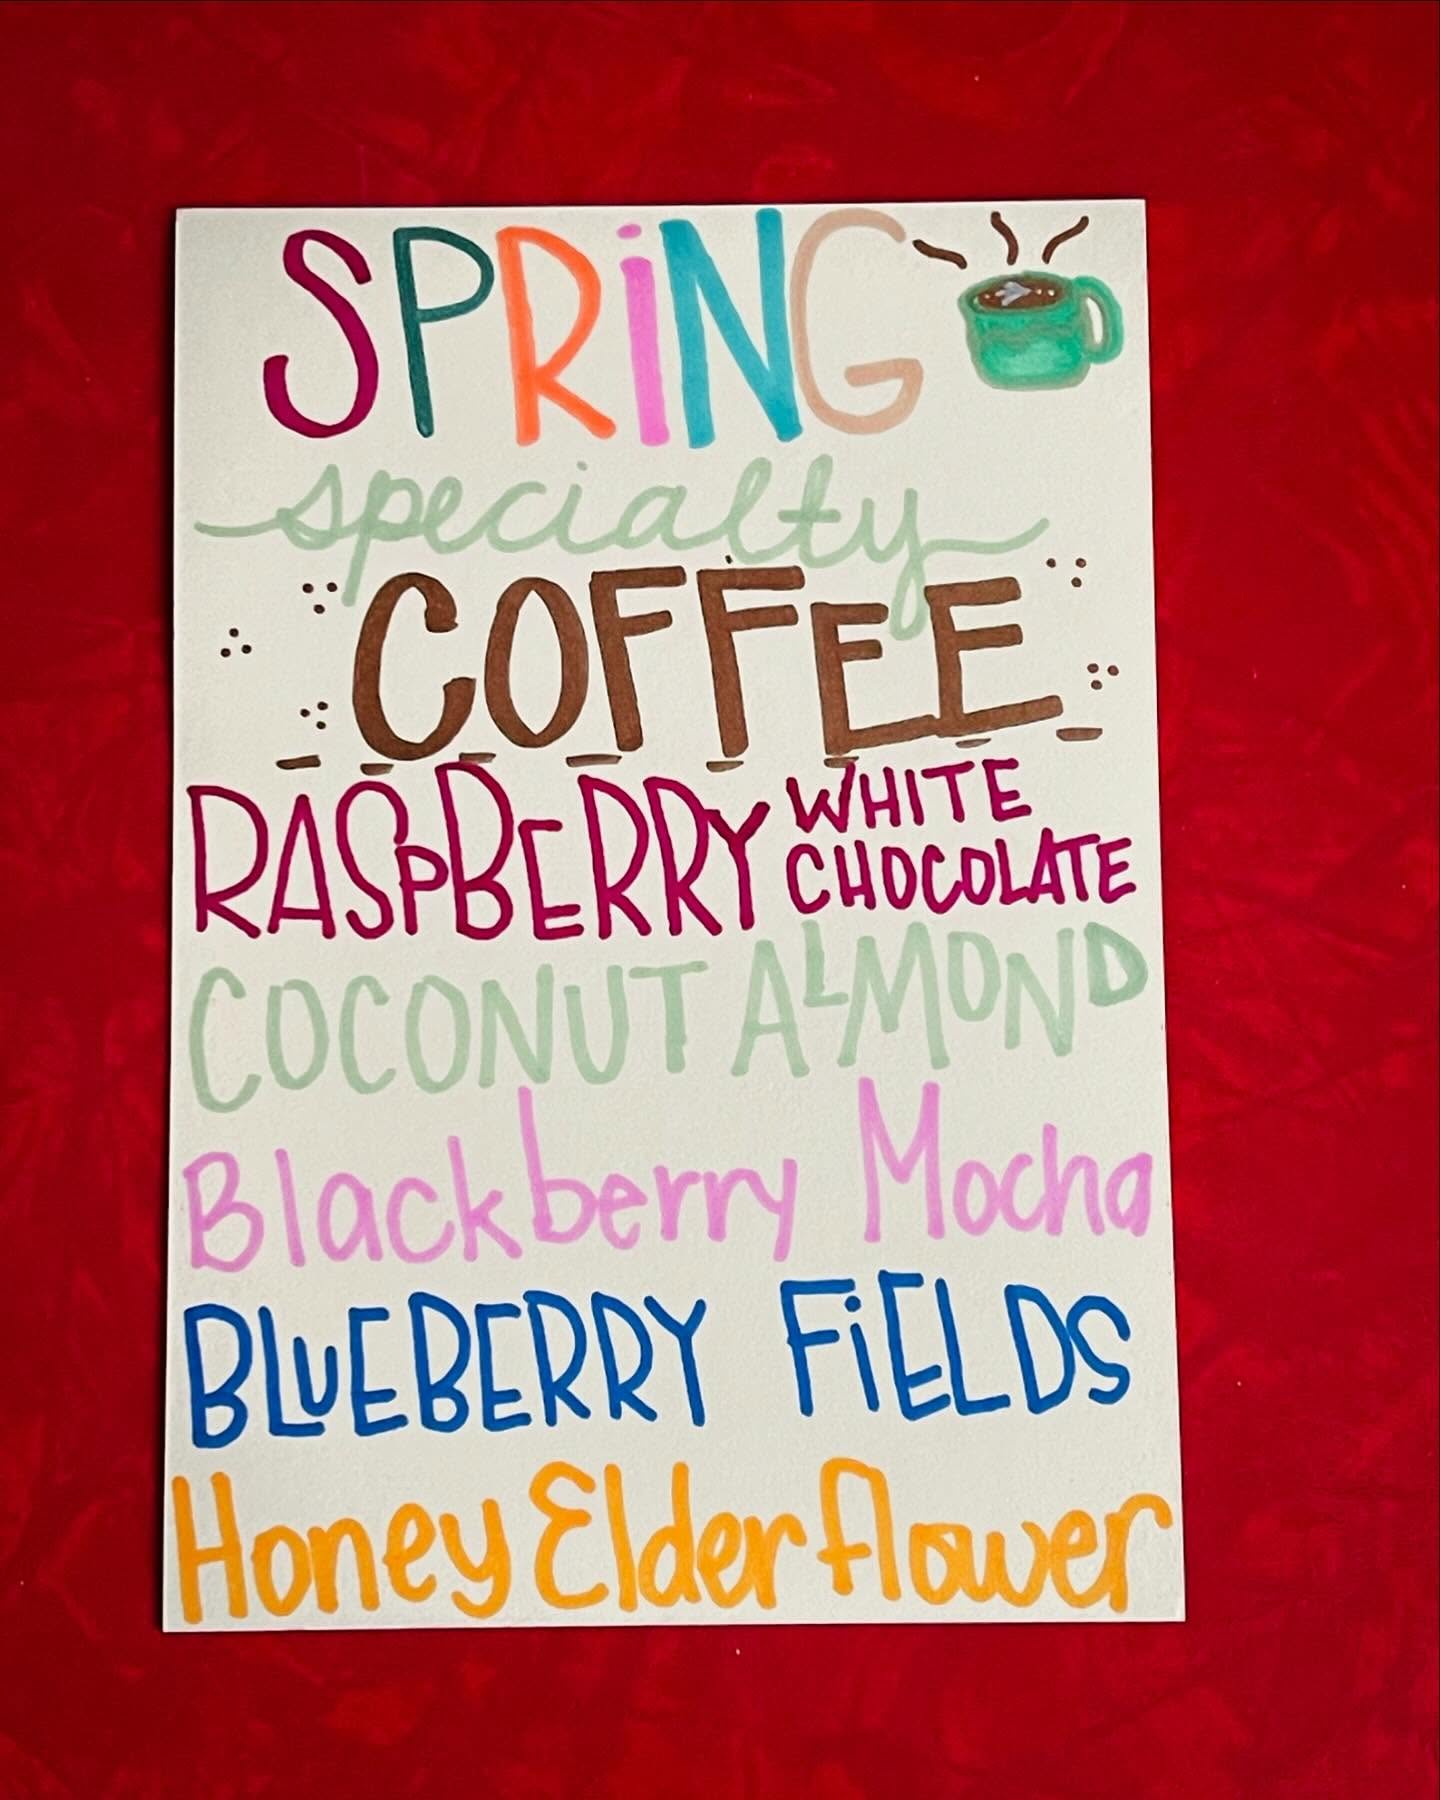 SPRiNG
specialty
COFFEE
RASPBERRY WHITE CHOCOLATE
COCONUT ALMOND
Blackberry Mocha
BLuEBERRY FiELDS
Honey Elderflower